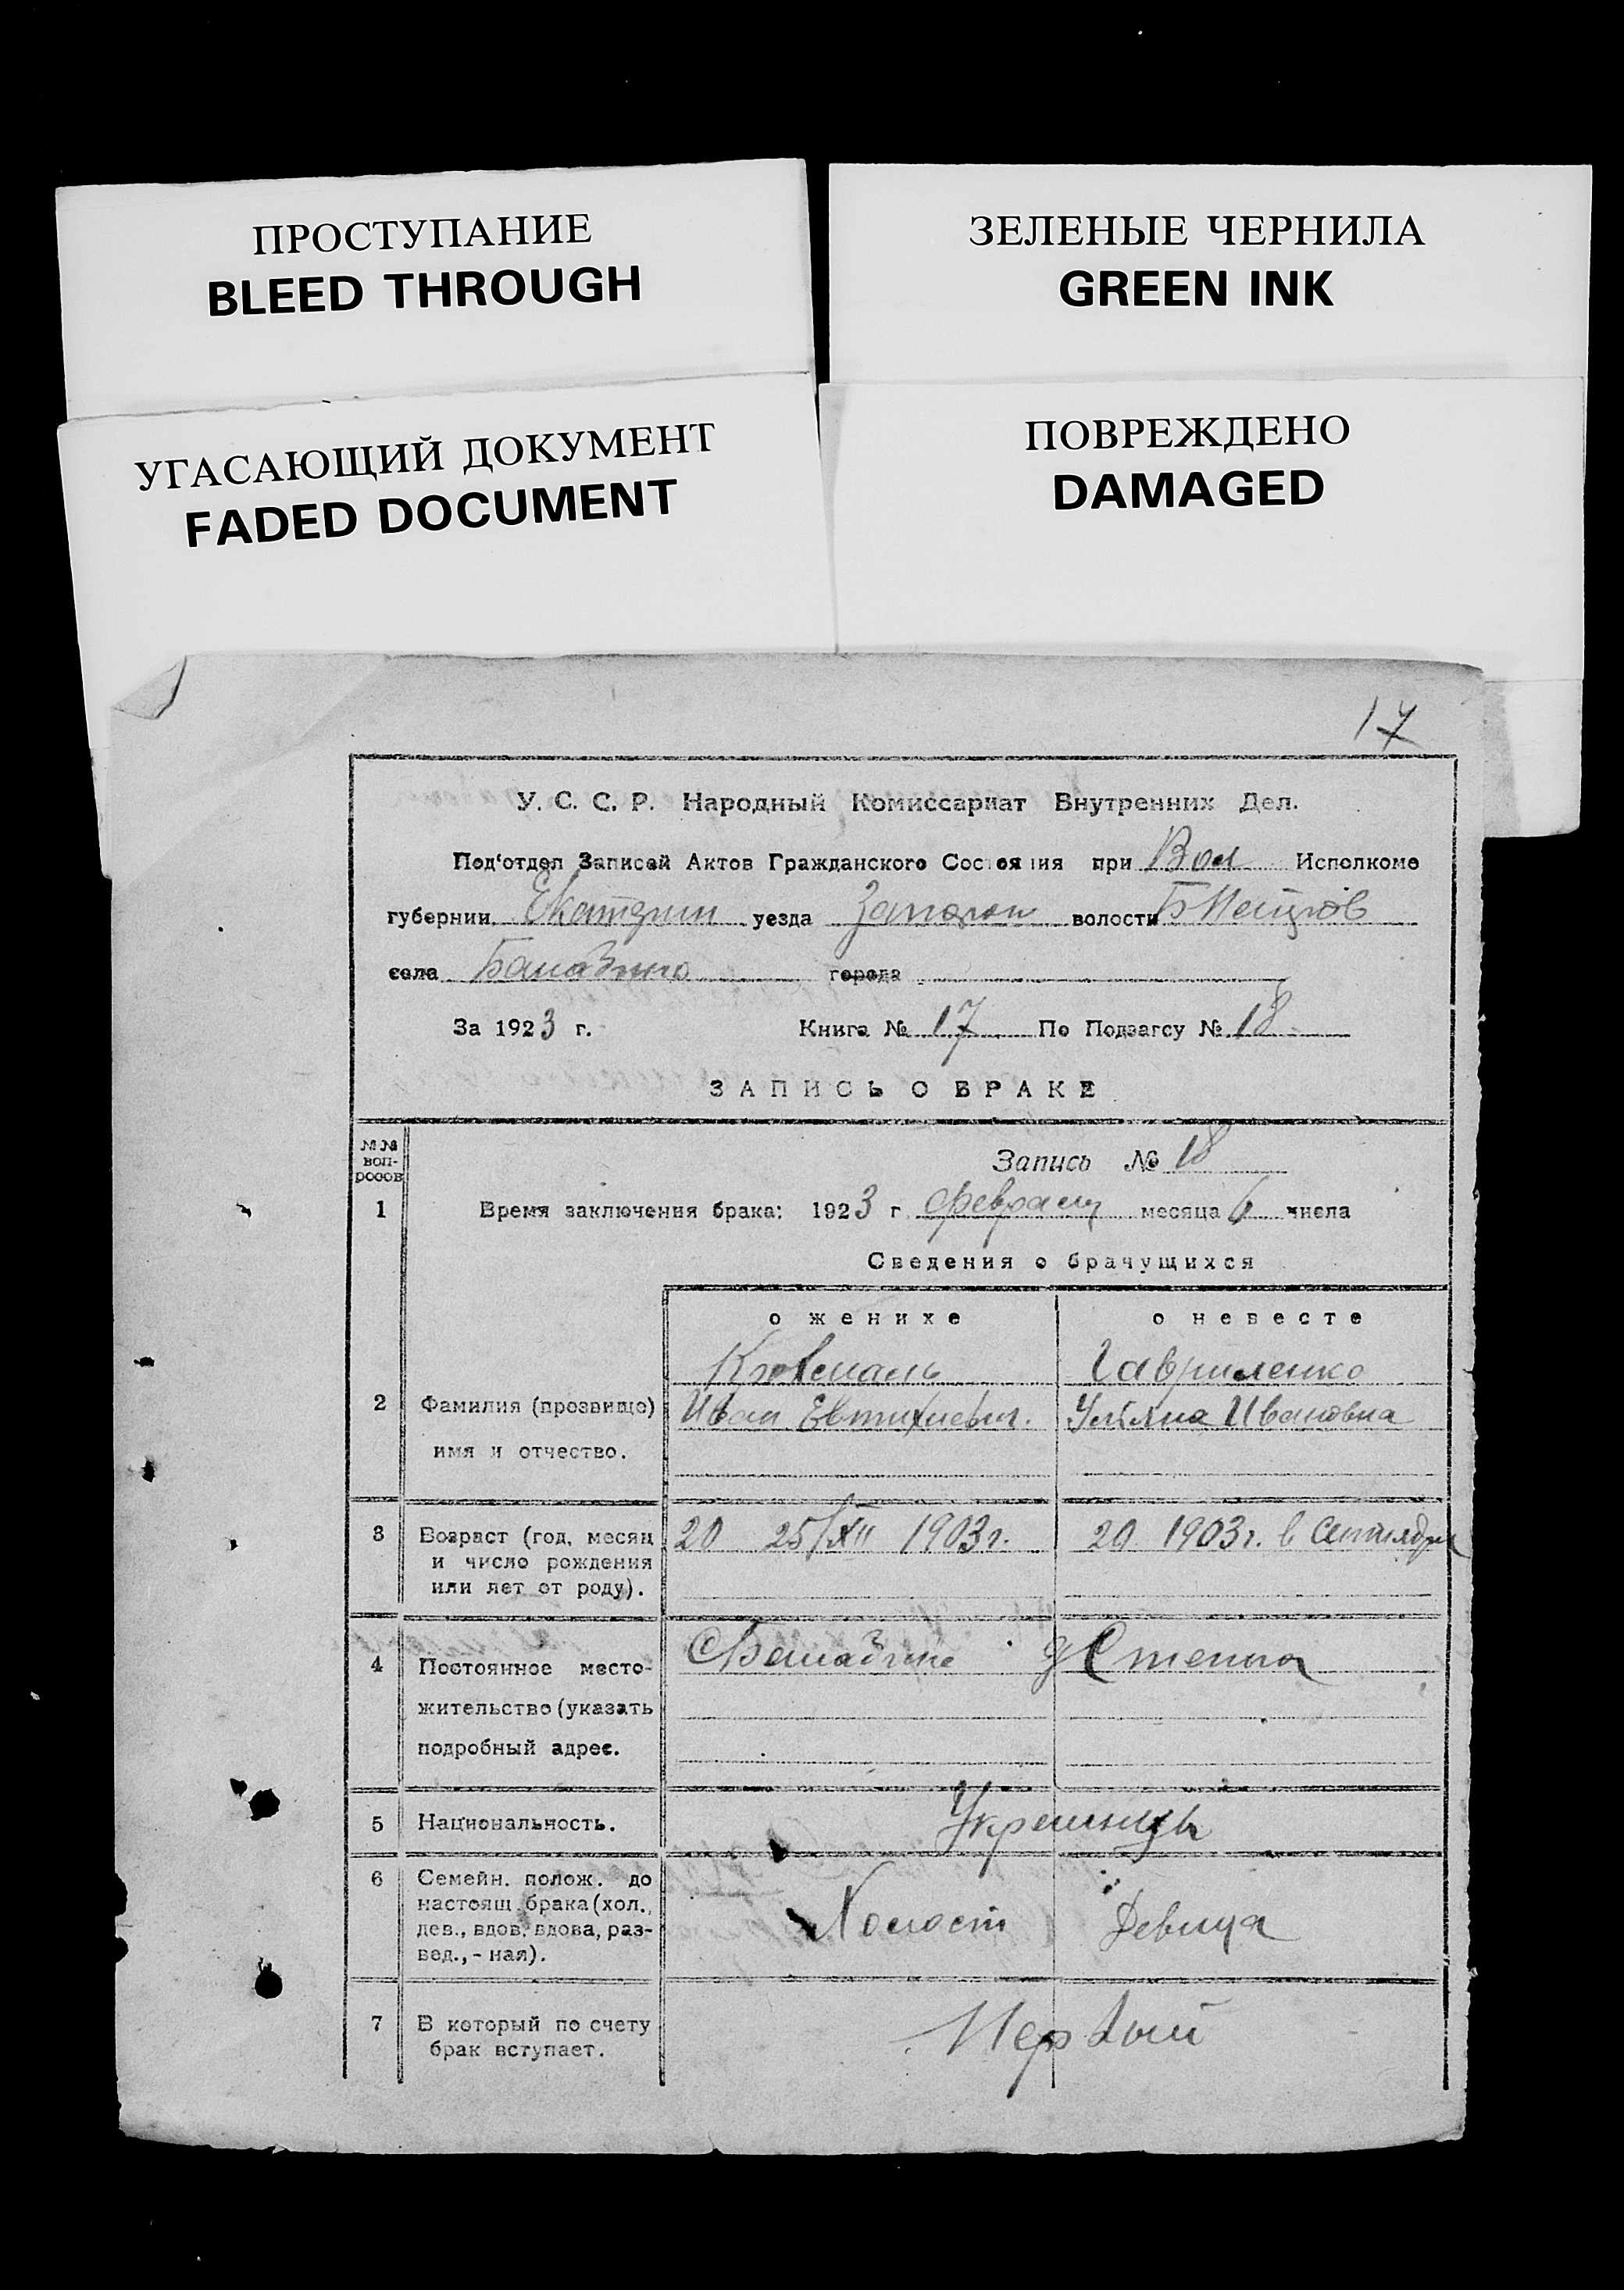 ПРОСТУПАНИЕ
BLEED THROUGH
ЗЕЛЕНЫЕ ЧЕРНИЛА
GREEN INK
УГАСАЮЩИЙ ДОКУМЕНТ
FADED DOCUMENT
ПОВРЕЖДЕНО
DAMAGED
17
У. С. С. Р. Народный Комиссариат Внутренних Дел.
Под'отдел Записей Актов Гражданского Состояния при Вол Исполкоме
губернии Екатерин уезда Запорож волости
села Балабино города
За 1923 г. Книга № 17 По Подзагсу № 18
ЗАПИСЬ О БРАКЕ
№№ воп-росов
Запись № 18
1 Время заключения брака: 1923 г. февраля месяца 6 числа
Сведения о брачущихся
о женихе о невесте
Гавриленко
2 Фамилия (прозвище) Иван Евтихиевич. Ульяна Ивановна
имя и отчество.
3 Возраст (год, месяц 20 25/XII 1903 г. 20 1903 г. в Сентябре
и число рождения
или лет от роду).
4 Постоянное место- С Балабине
жительство (указать
подробный адрес.
5 Национальность. Украинцы
6 Семейн. полож. до
настоящ. брака (хол., Холост Девица
дев., вдов. вдова, раз-
вед., - ная).
7 В который по счету Первый
брак вступает.